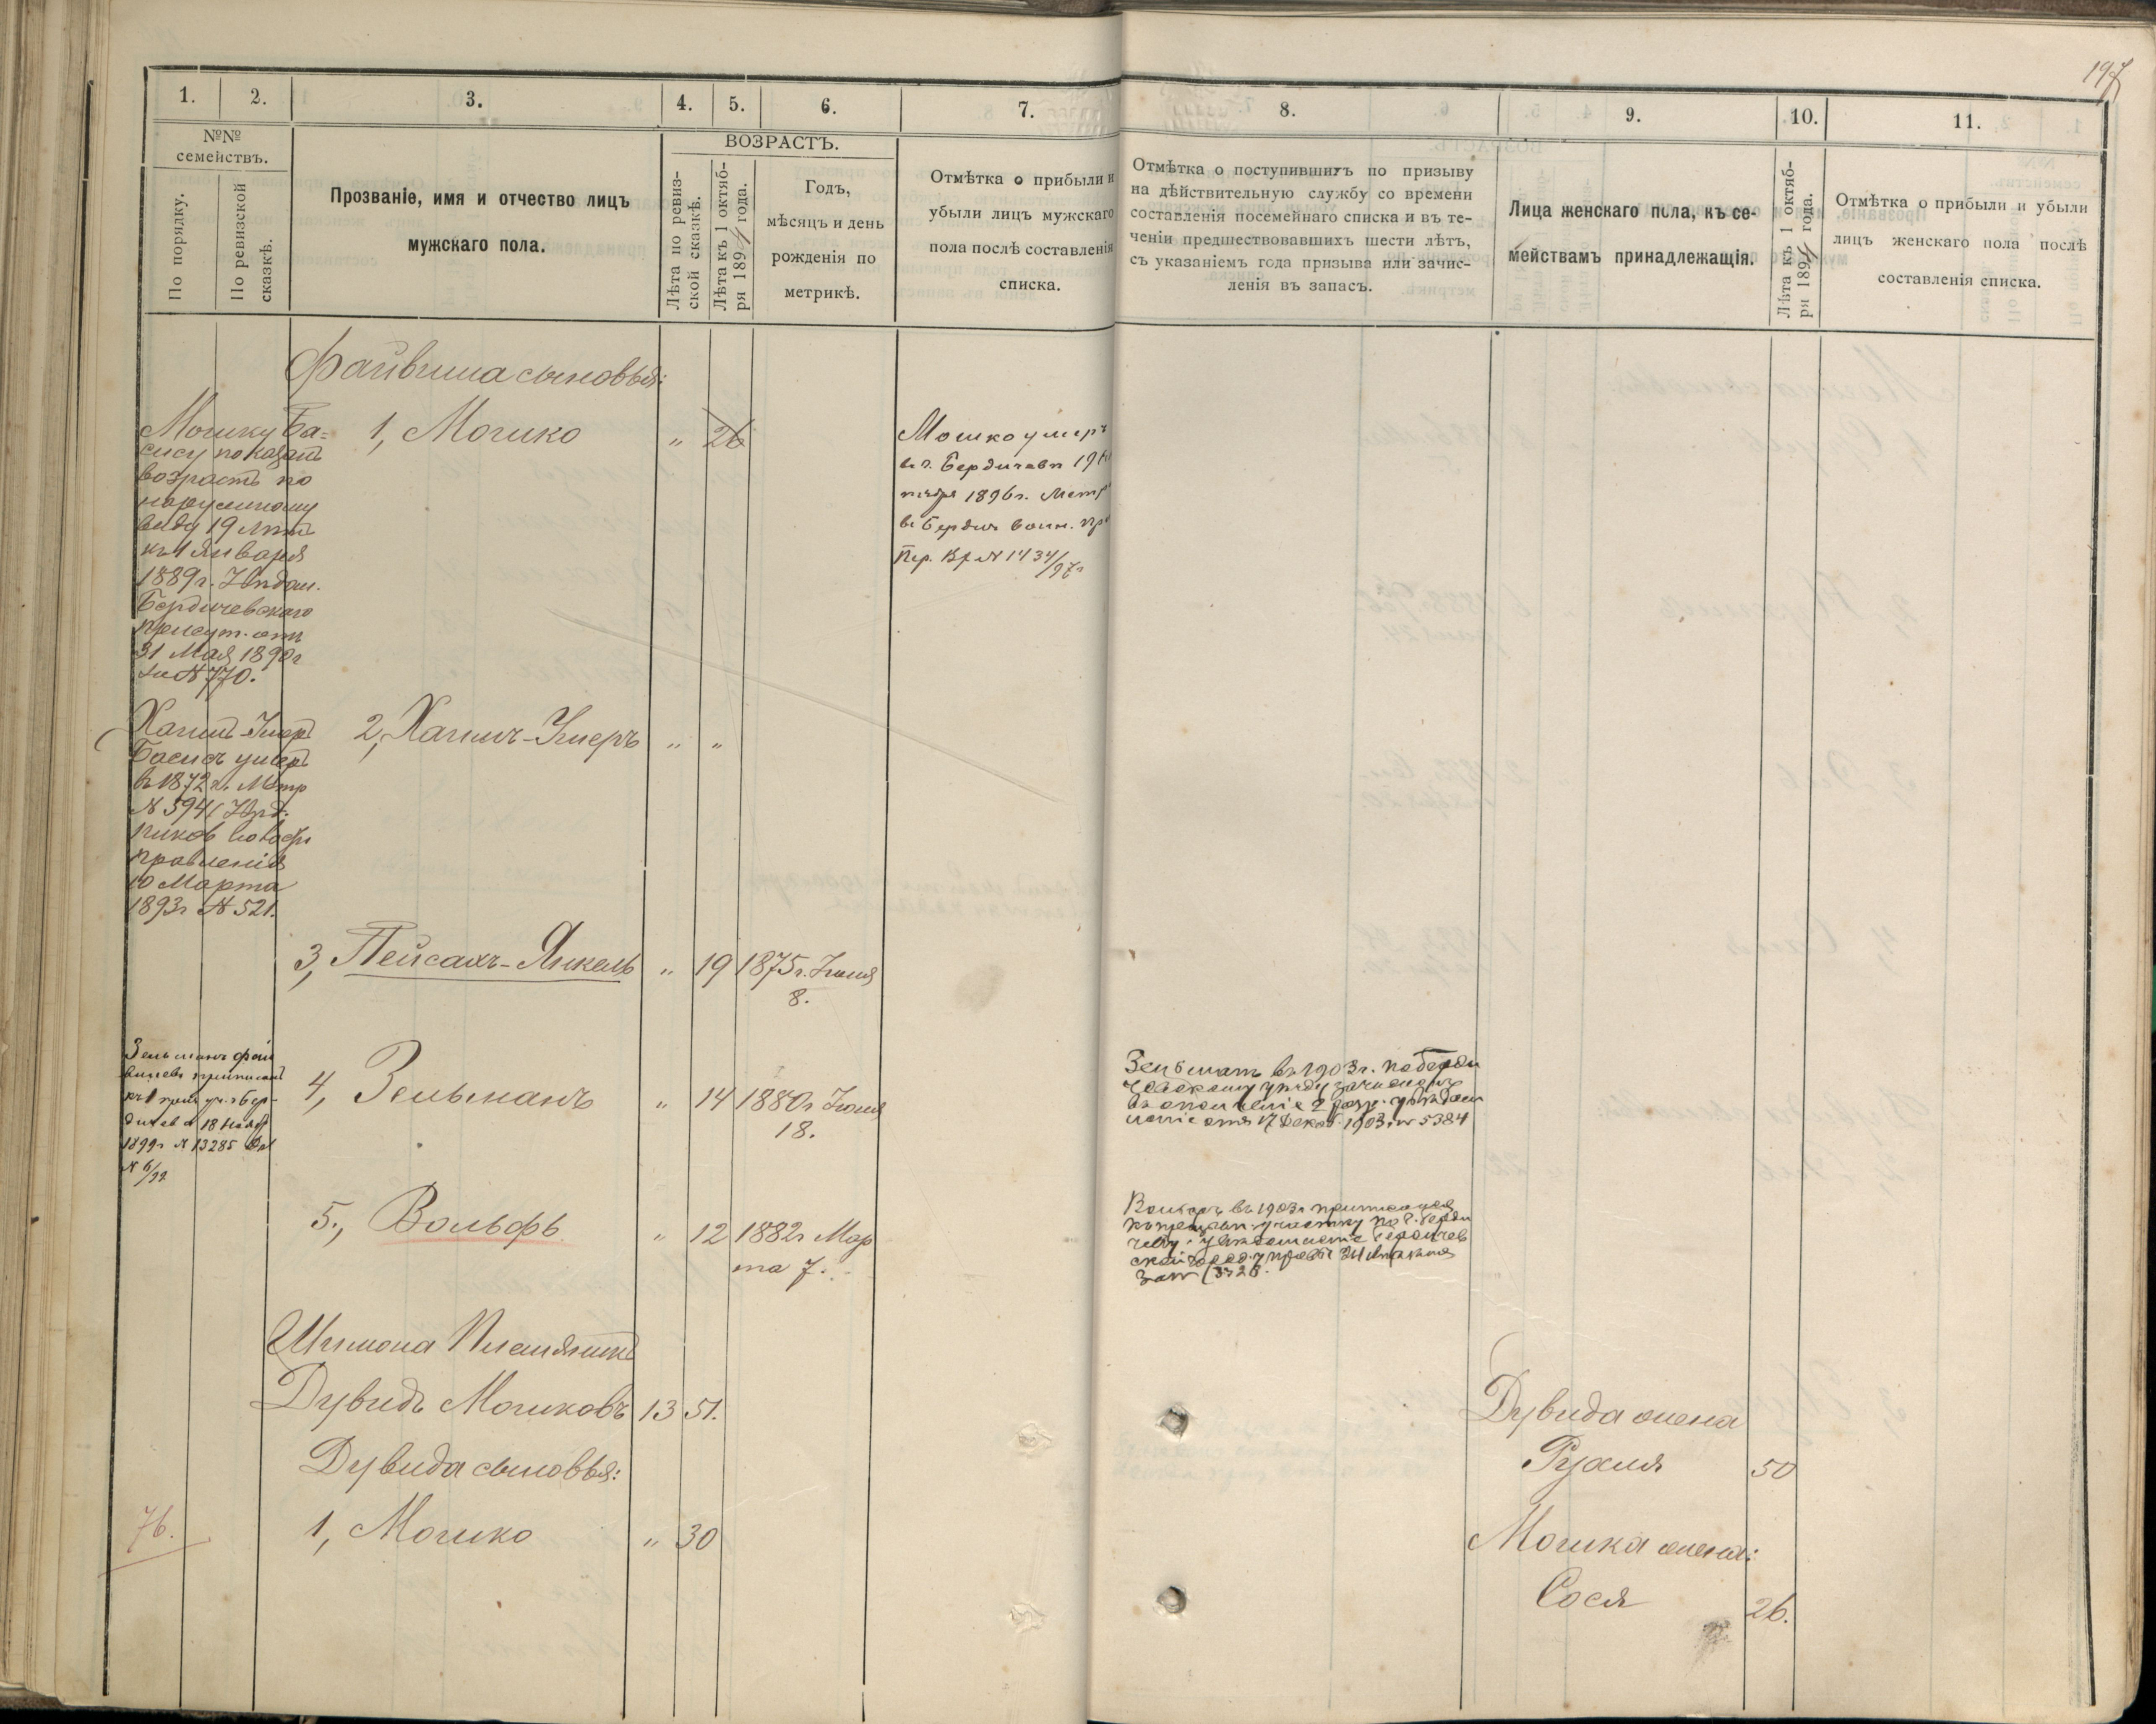 197
1. 2. 3. 4. 5. 6. 7. 8. 9. 10. 11.
№№
семействъ.
По порядку.
По ревизской
сказкѣ.
Прозваніе, имя и отчество лицъ
мужскаго пола.
ВОЗРАСТЪ.
Лѣта по ревиз-
ской сказкѣ.
Лѣта къ 1 октяб-
ря 1894 года.
Годъ,
мѣсяцъ и день
рожденія по
метрикѣ.
Отмѣтка о прибыли и
убыли лицъ мужскаго
пола послѣ составленія
списка.
Отмѣтка о поступившихъ по призыву
на дѣйствительную службу со времени
составленія посемейнаго списка и въ те-
ченіи предшествовавшихъ шести лѣтъ,
съ указаніемъ года призыва или зачис-
ленія въ запасъ.
Лица женскаго пола, къ се-
мействамъ принадлежащія.
Лѣта къ 1 октяб-
ря 1894 года.
Отмѣтка о прибыли и убыли
лицъ женскаго пола послѣ
составленія списка.
Файвиша сыновья:
Мошку Ба-
сису показанъ
возрастъ по
наружному
виду 19 лѣтъ
къ 1 Января
1889 г.
Бердичевскаго
присут. отъ
31 Мая 1890 г
за № 770.
1, Мошко " 26
Мошко умеръ
въ г. Бердичевѣ 19
1896 г. Метр
в Бердич воин. пр
№ 1434/97 г
Хаимъ-Умеръ
Басисъ умеръ
въ 1872 г. Метр
№ 594
правленія
10 Марта
1893 г № 521.
2, Хаимъ-Умеръ " "
3, Пейсахъ-Янкель " 19 1875 г. Іюня
8.
Зельманъ Фай
вишевъ приписанъ
къ 1 приз. уч. г Бер-
дичева 18 Нояб
1899 г № 13285
№ 6/99
4, Зельманъ " 14 1880 г Іюня
18.
Зельманъ въ 1903 г. по Берди
чевскому уѣзду зачисленъ
въ ополченіе 2 разр. увѣдом
леніе отъ 17 Декаб. 1903 г № 5384
5., Вольфъ " 12 1882 г Мар
та 7.
Вольфъ въ 1903 г приписанъ
къ призывн. участку по г. Берди
чеву увѣдомленіе Бердичев
ской город. управы
за №
Шимона Племянникъ
Дувидъ Мошковъ 13 51.
Дувида жена
Рухля 50
Дувида сыновья:
76.
1, Мошко " 30
Мошка жена:
Сося 26.